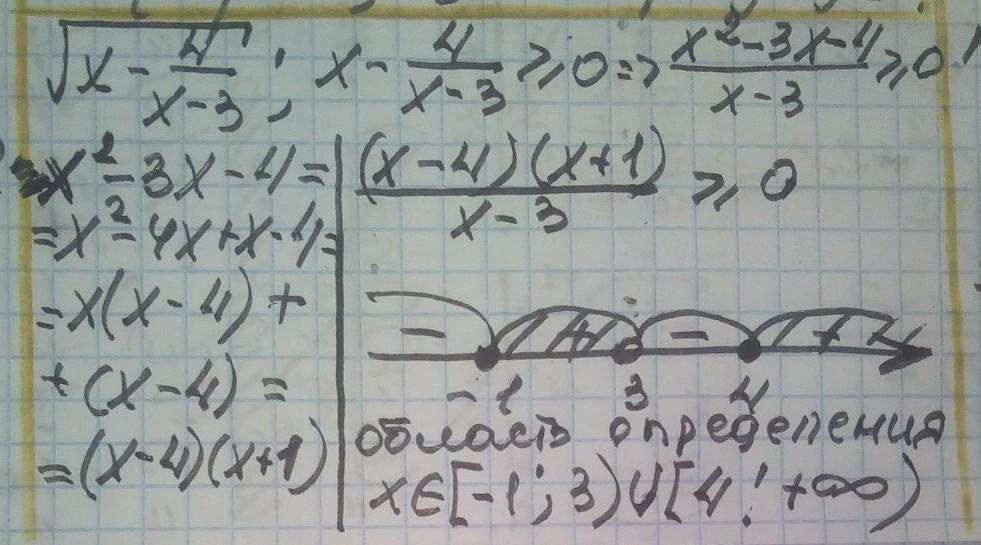 √(x - 4/(x-3)) ; x - 4/(x-3) ⩾ 0 => (x²-3x-4)/(x-3) ⩾ 0
x²-3x-4=
=x²-4x+x-4=
=x(x-4)+
+(x-4)=
=(x-4)(x+1)
(x-4)(x+1)/(x-3) ⩾ 0
- + - +
-1 3 4
область определения
x∈[-1; 3)∪[4; +∞)